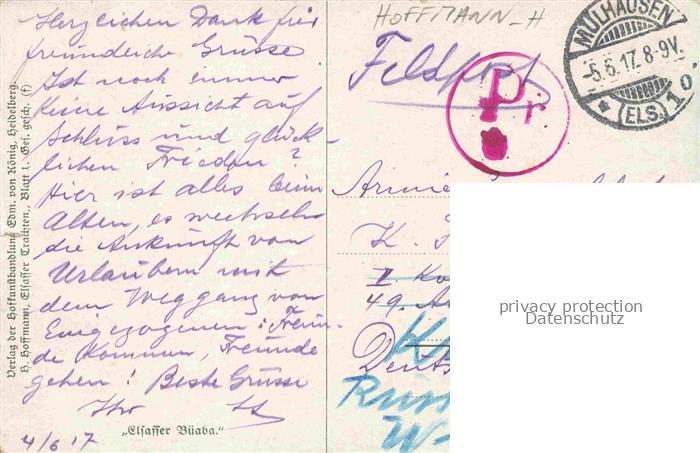 Herzlichen Dank für
freundliche Grüsse
Ist noch immer
keine Aussicht auf
Schluss und glück-
lichen Frieden?
Hier ist alles beim
Alten, es wechseln
die Ankunft von
Urlaubern mit
dem Weggang von
Eingezogenen: Freun-
de kommen, Freunde
gehen! Beste Grüsse
Ihr
4/6 17
„Elsasser Büaba."
Verlag der Hofkunsthandlung Edm. von König, Heidelberg.
H. Hoffmann, Elsasser Trachten, Blatt 1. Ges. gesch. (f)
HOFFMANN_H
Feldpost
MÜLHAUSEN
-5.6.17. 8-9V.
* (ELS.) 10.
Pr
K.
II
49.
Deuts
privacy protection
Datenschutz